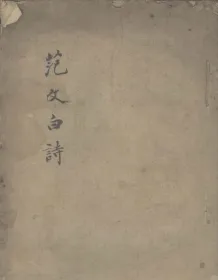 范文白詩